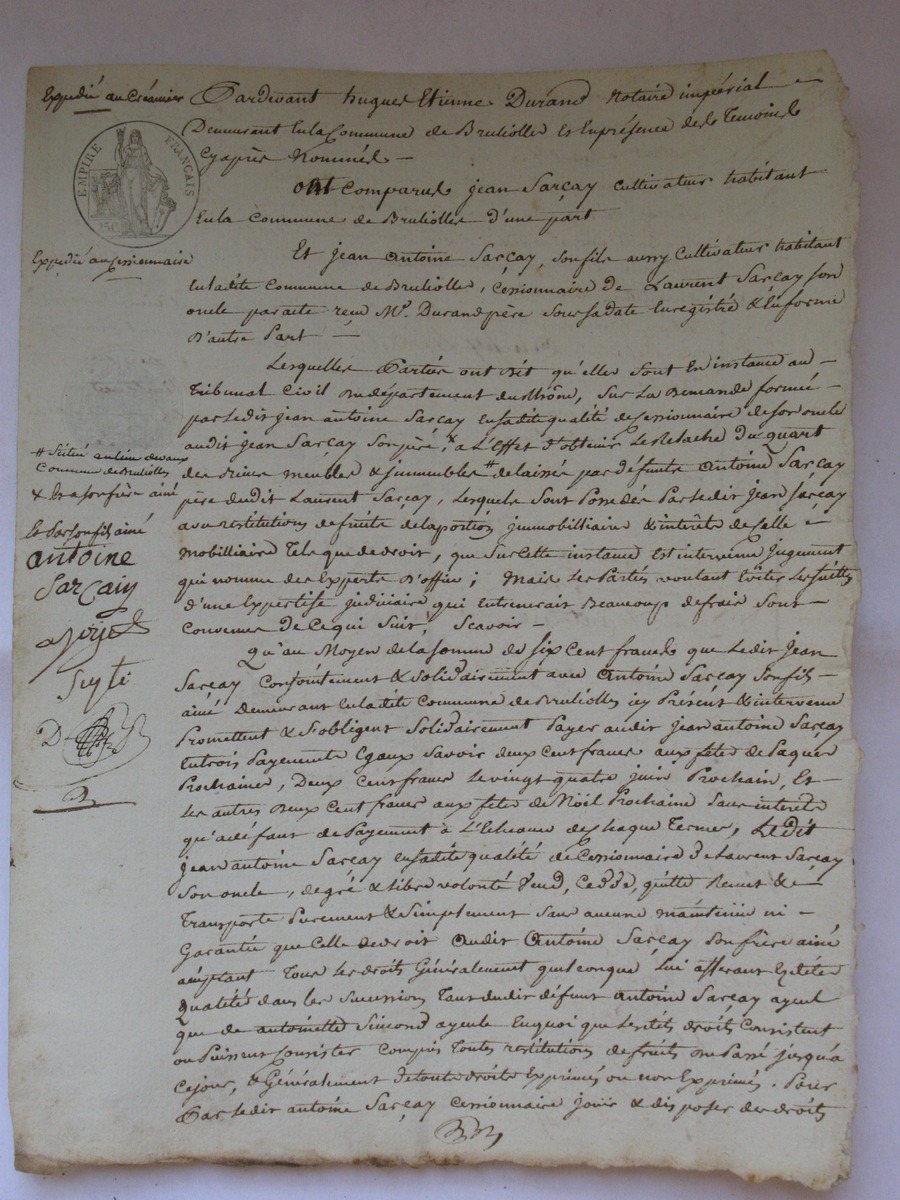 Expedié au Créancier
EMPIRE FRANÇAIS
Expedié au Cessionnaire
Pardevant hugues Etienne Durand Notaire impérial
Demeurant En la Commune de Brulliolles Et En présence des Temoins
Cyaprès Nommés —
ont comparus jean Sarcay Cultivateur habitant
En la Commune de Brulliolles d'une part
Et jean Antoine Sarcay, son fils aussy Cultivateur habitant
En la dite Commune de Brulliolles, Cessionnaire de Laurent Sarcay son
oncle par acte reçu Me. Durand père sous sa date Enregistré & En forme
D'autre Part —
Lesquelles Parties ont Dit qu'elles sont En instance au
Tribunal Civil du département du Rhône, Sur La Demande formée
par Le dit jean antoine Sarcay En sa dite qualité de Cessionnaire de son oncle
audit jean Sarcay Son père, a L'Effet d'obtenir Le Relache du quart
des Biens meubles & immeubles # delaissé par défunt Antoine Sarcay
père dudit Laurent Sarcay, Lesquels Sont Possedés Par Le dit jean Sarcay
avec restitutions de fruits de la portion immobilliaire & intérêts de Celle
mobilliaire Tels que de droit, que Sur Cette instance Est intervenu jugement
qui nomme des Experts D'office; Mais Les Parties voulant Eviter Les Suittes
d'une Expertise judiciaire qui Entrenerait Beaucoup de frais Sont
Convenues de Ce qui Suit, Scavoir —
Qu'au Moyen de la somme de Six Cent francs que Le dit Jean
Sarcay Conjointement & Solidairement avec Antoine Sarcay Son fils
ainé Demeurant En la dite Commune de Brulliolles icy Présent & intervenu
Promettent & S'obligent Solidairement Payer audit jean antoine Sarcay
En trois Payements Egaux Savoir deux Cent francs aux fêtes de Paques
Prochaines, Deux Cent francs Le vingt quatre juin Prochain, Et
Les autres Deux Cent francs aux fêtes de Noël Prochaines Sans interets
qu'a défaut de Payement à L'Echeance de Chaque Terme, Le Dit
jean antoine Sarcay En sa dite qualité de Cessionnaire de Laurent Sarcay
Son oncle, de gré & Libre volonté Vend, Cedde, quitte Remet &
Transporte Purement & Simplement Sans aucune maintenue ni
Garantie que Celle de droit audit Antoine Sarcay Son frère ainé
acceptant Tous Les droits Généralement quelconque Lui afferant Esdites
Qualités dans Les Successions Tant dudit défunt Antoine Sarcay ayeul
que de antoinette Simond ayeule En quoi que Lesdits droits Consistent
ou Puissent Consister Compris Toutes restitutions de fruits du Passé jusqu'a
Ce jour, & Généralement de toute droits Exprimés ou non Exprimés. Pour
Par Le dit antoine Sarcay Cessionnaire jouir & disposer des droits
# Scitué au lieu
Commune de Brulliolles
& a son frère ainé
antoine
Sarcay